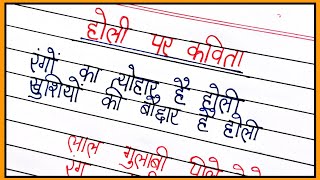 होली पर कविता
रंगों का त्योहार है होली
खुशियों की बौछार है होली
लाल गुलाबी पीले
रंग